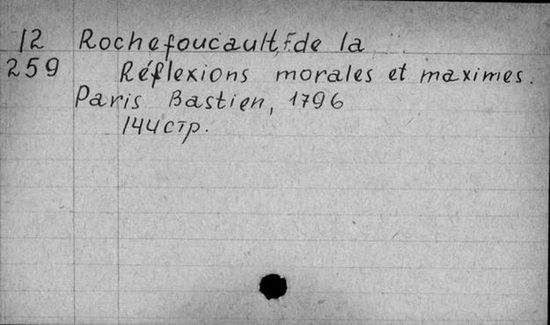 12 Rochefoucault, F. de la
259 Réflexions morales et maximes.
Paris Bastien, 1796
144 стр.